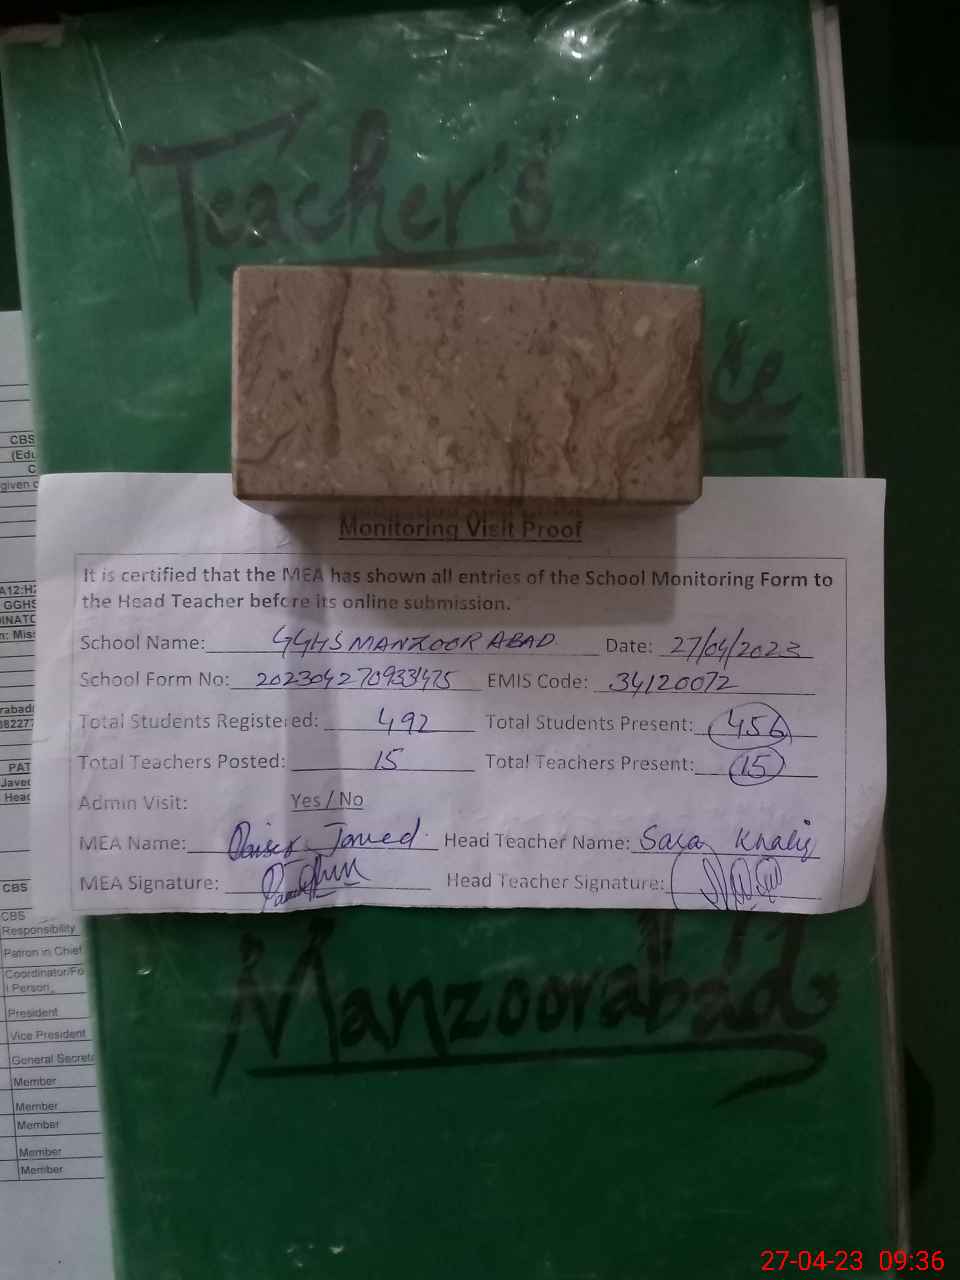 Teacher's
ce
Monitoring Visit Proof
It is certified that the MEA has shown all entries of the School Monitoring Form to
the Head Teacher before its online submission.
School Name: GGHS MANZOOR ABAD Date: 27/04/2023
School Form No: 202304270933475 EMIS Code: 34120072
Total Students Registered: 492 Total Students Present: 456
Total Teachers Posted: 15 Total Teachers Present: 15
Admin Visit: Yes / No
MEA Name: Javed Head Teacher Name: Sara Khaliq
MEA Signature: Head Teacher Signature:
Manzoorabad
CBS
(Edu
C
given
A12:H
GGHS
INATO
n: Miss
rabad
38227
PAT
Javed
Head
CBS
CBS
Responsibility
Patron in Chief
Coordinator/Fo
l Person
President
Vice President
General Secret
Member
Member
Member
Member
Member
27-04-23 09:36